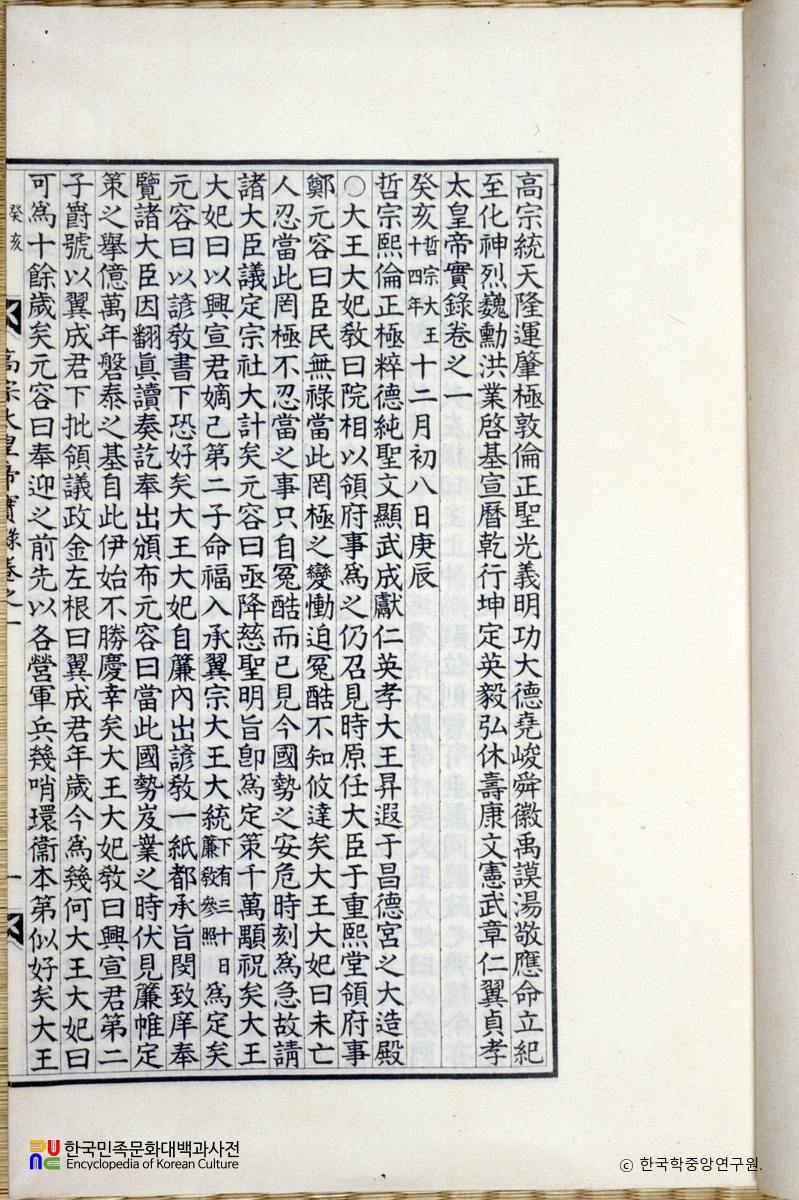 高宗統天隆運肇極敦倫正聖光義明功大德堯峻舜徽禹謨湯敬應命立紀
至化神烈巍勳洪業啓基宣曆乾行坤定英毅弘休壽康文憲武章仁翼貞孝
太皇帝實錄卷之一
癸亥哲宗大王十四年十二月初八日庚辰
哲宗熙倫正極粹德純聖文顯武成獻仁英孝大王昇遐于昌德宮之大造殿
○大王大妃敎曰院相以領府事爲之仍召見時原任大臣于重熙堂領府事
鄭元容曰臣民無祿當此罔極之變慟迫冤酷不知攸達矣大王大妃曰未亡
人忍當此罔極不忍當之事只自冤酷而已見今國勢之安危時刻爲急故請
諸大臣議定宗社大計矣元容曰亟降慈聖明旨卽爲定策千萬顒祝矣大王
大妃曰以興宣君嫡己第二子命福入承翼宗大王大統下有三十日簾敎參照爲定矣
元容曰以諺敎書下恐好矣大王大妃自簾內出諺敎一紙都承旨閔致庠奉
覽諸大臣因翻眞讀奏訖奉出頒布元容曰當此國勢岌嶪之時伏見簾帷定
策之擧億萬年磐泰之基自此伊始不勝慶幸矣大王大妃敎曰興宣君第二
子爵號以翼成君下批領議政金左根曰翼成君年歲今爲幾何大王大妃曰
可爲十餘歲矣元容曰奉迎之前先以各營軍兵幾哨環衞本第似好矣大王
癸亥
高宗太皇帝實錄卷之一
一
한국민족문화대백과사전
Encyclopedia of Korean Culture
© 한국학중앙연구원.